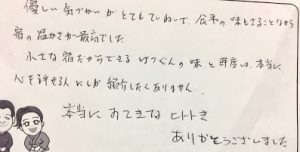 優しい気づかいがとてもていねいで、食事の味もさることながら
宿の温かさが最高でした。
小さな宿だからできるばつぐんの味と部屋は、本当に
心を許せる人にしか紹介したくありません。
本当にすてきなひととき
ありがとうございました